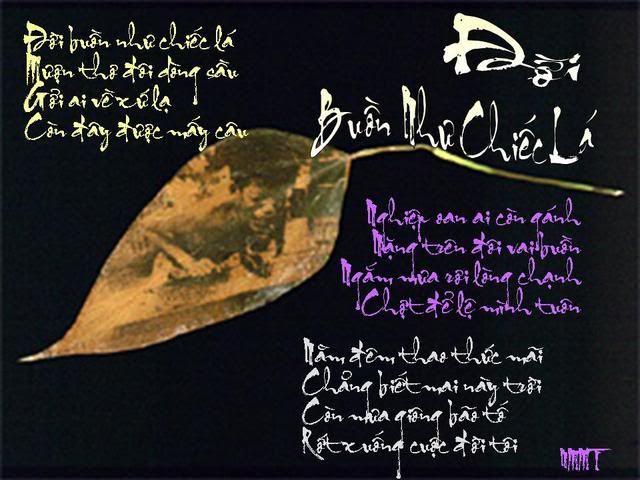 Đời
Buồn Như Chiếc Lá
Đời buồn như chiếc lá
Mượn thơ đôi dòng sầu
Gởi ai về xứ lạ
Còn đây được mấy câu
Nghiệp oan ai còn gánh
Nặng trên đôi vai buồn
Ngắm mưa rơi lòng chạnh
Chợt để lệ mình tuôn
Nằm đêm thao thức mãi
Chẳng biết mai này trôi
Còn mưa giông bão tố
Rớt xuống cuộc đời tôi